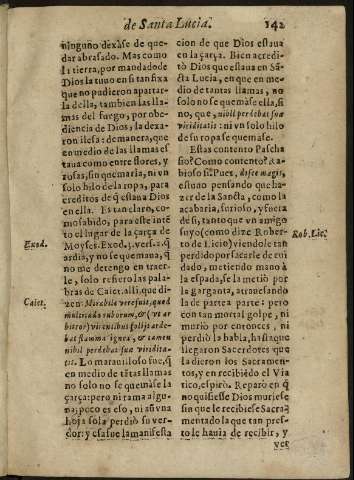 de Santa Lucia. 142
ninguno dexàse de que-
dar abrasado. Mas como
la tierra, por mandado de
Dios la tuvo en sí tan fixa
que no pudieron apartar-
la della, tambien las lla-
mas del fuego, por obe-
diencia de Dios, la dexa-
ron ilesa: de manera, que
en medio de las llamas es
taua como entre flores, y
rosas, sin quemarla, ni vn
solo hilo de la ropa, para
creditos de q̃ estaua Dios
en ella. Es tan claro, co-
mo sabido, para este inte̅
to el lugar de la çarça de
Exod. Moyses. Exod. 3. vers. 2. q̃
ardia, y no se quemaua, q̃
no me detengo en traer-
le, solo refiero las pala-
Caiet. bras de Caiet. alli, que di-
zen: Mirabile vere fuit, quod
multitudo ruborum, & (vt ar
bitror) virentibus folijs arde-
bat flamma ignea, & tamen
nihil perdebat sua viridita-
tis. Lo marauilloso fue, q̃
en medio de tãtas llamas
no solo no se quemàse la
çarça: pero ni rama algu-
na; poco es eso, ni aũ vna
hoja sola perdiò su ver-
dor: y esa fue la manifesta
cion de que Dios estaua
en la çarça. Bien acredi-
tò Dios que estaua en Sã-
cta Lucia, en que en me-
dio de tantas llamas, no
solo no se quemàse ella, si
no, que, nibil perdebat sua
viriditatis: ni vn solo hilo
de su ropa se quemàse.
Estas contento Pascha
sio? Como contento? Ra-
bioso sì. Pues, dosce magis,
estuuo pensando que ha-
zer de la Sancta, como la
acabaria, furioso, y fuera
de sì, tanto que vn amigo
suyo (como dize Rober-
Rob. Lic. to de Licio) viendole tan
perdido por sacarle de cui
dado, metiendo mano à
la espada, se la metiò por
la garganta, atrauesando
la de parte a parte: pero
con tan mortal golpe, ni
muriò por entonces, ni
perdiò la habla, hasta que
llegaron Sacerdotes que
la dieron los Sacramen-
tos, y en recibiẽdo el Via
tico, espirò. Reparò en q̃
no quisiesse Dios muriese
sin que le recibiese Sacra
mentado la que tan pres-
to le hauia de recibir, y
ver